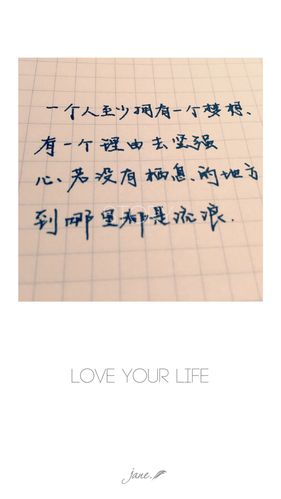 一个人至少拥有一个梦想、
有一个理由去坚强
心、若没有栖息、的地方
到哪里都是流浪.
LOVE YOUR LIFE
jane.